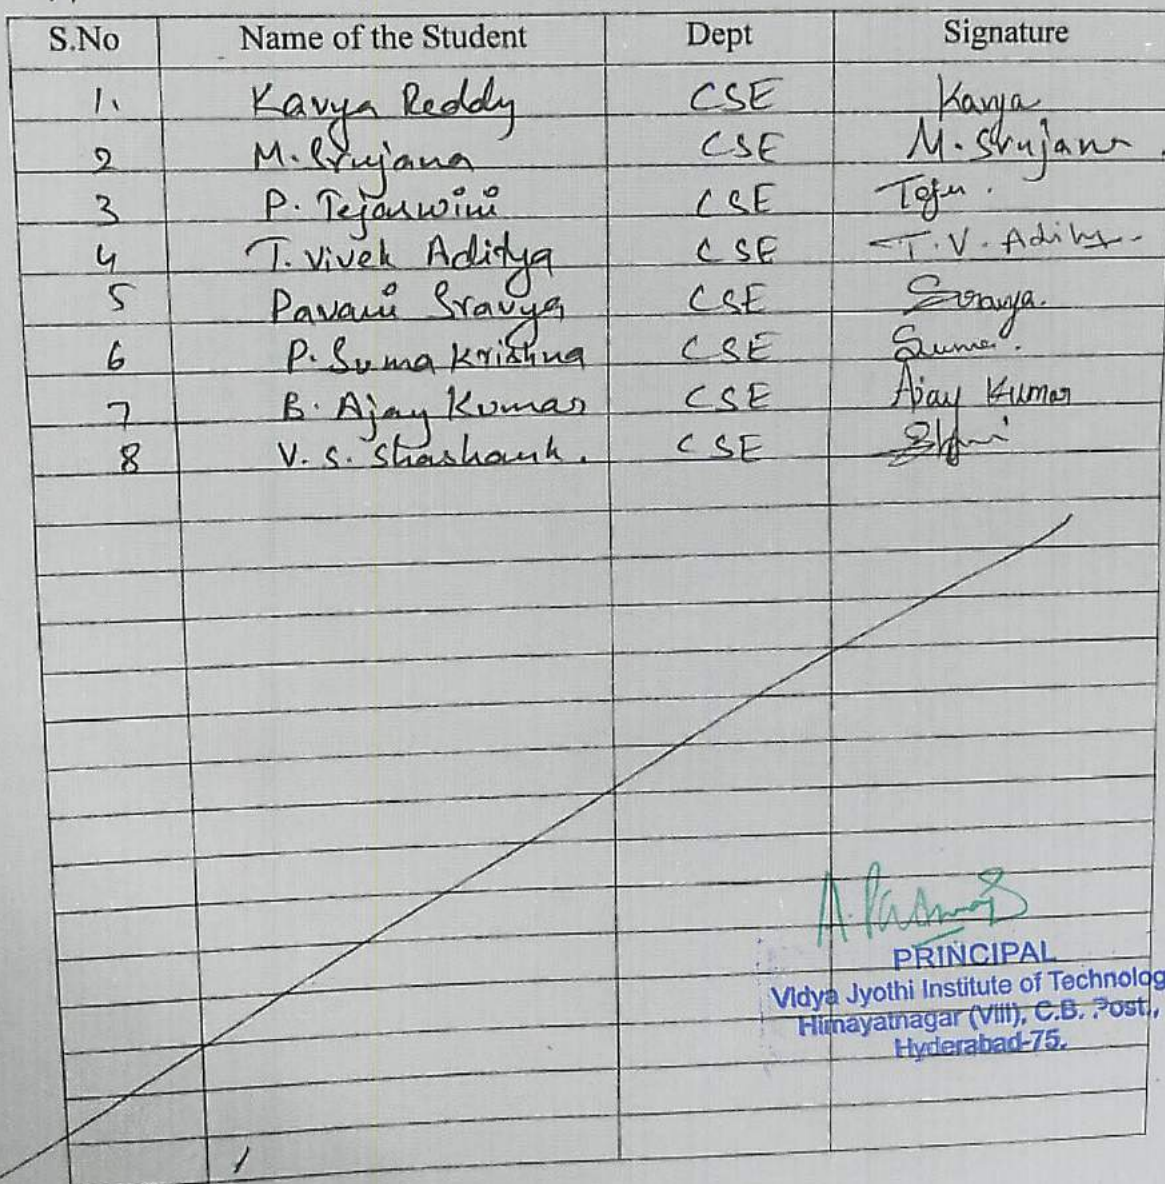 S.No Name of the Student Dept Signature
1. Kavya Reddy CSE Kavya
2 M. Srujana CSE M. Srujana
3 P. Tejaswini CSE Teju.
4 T. Vivek Aditya CSE T.V. Aditya
5 Pavani Sravya CSE Sravya.
6 P. Suma Krishna CSE Suma.
7 B. Ajay Kumar CSE Ajay Kumar
8 V. S. Shashank. CSE
PRINCIPAL
Vidya Jyothi Institute of Technolog
Himayatnagar (Vill), C.B. Post.,
Hyderabad-75.